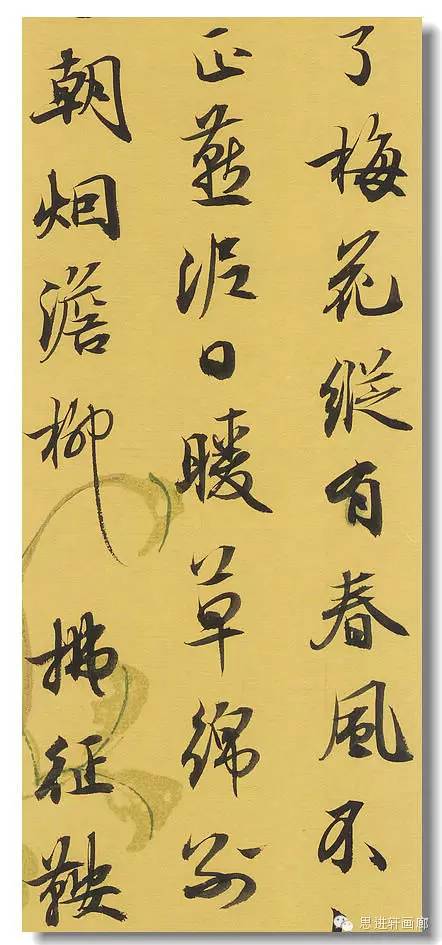 了梅花縱有春風不
正燕泥日暖草綿别
朝烟澹柳拂征鞍
思进轩画廊